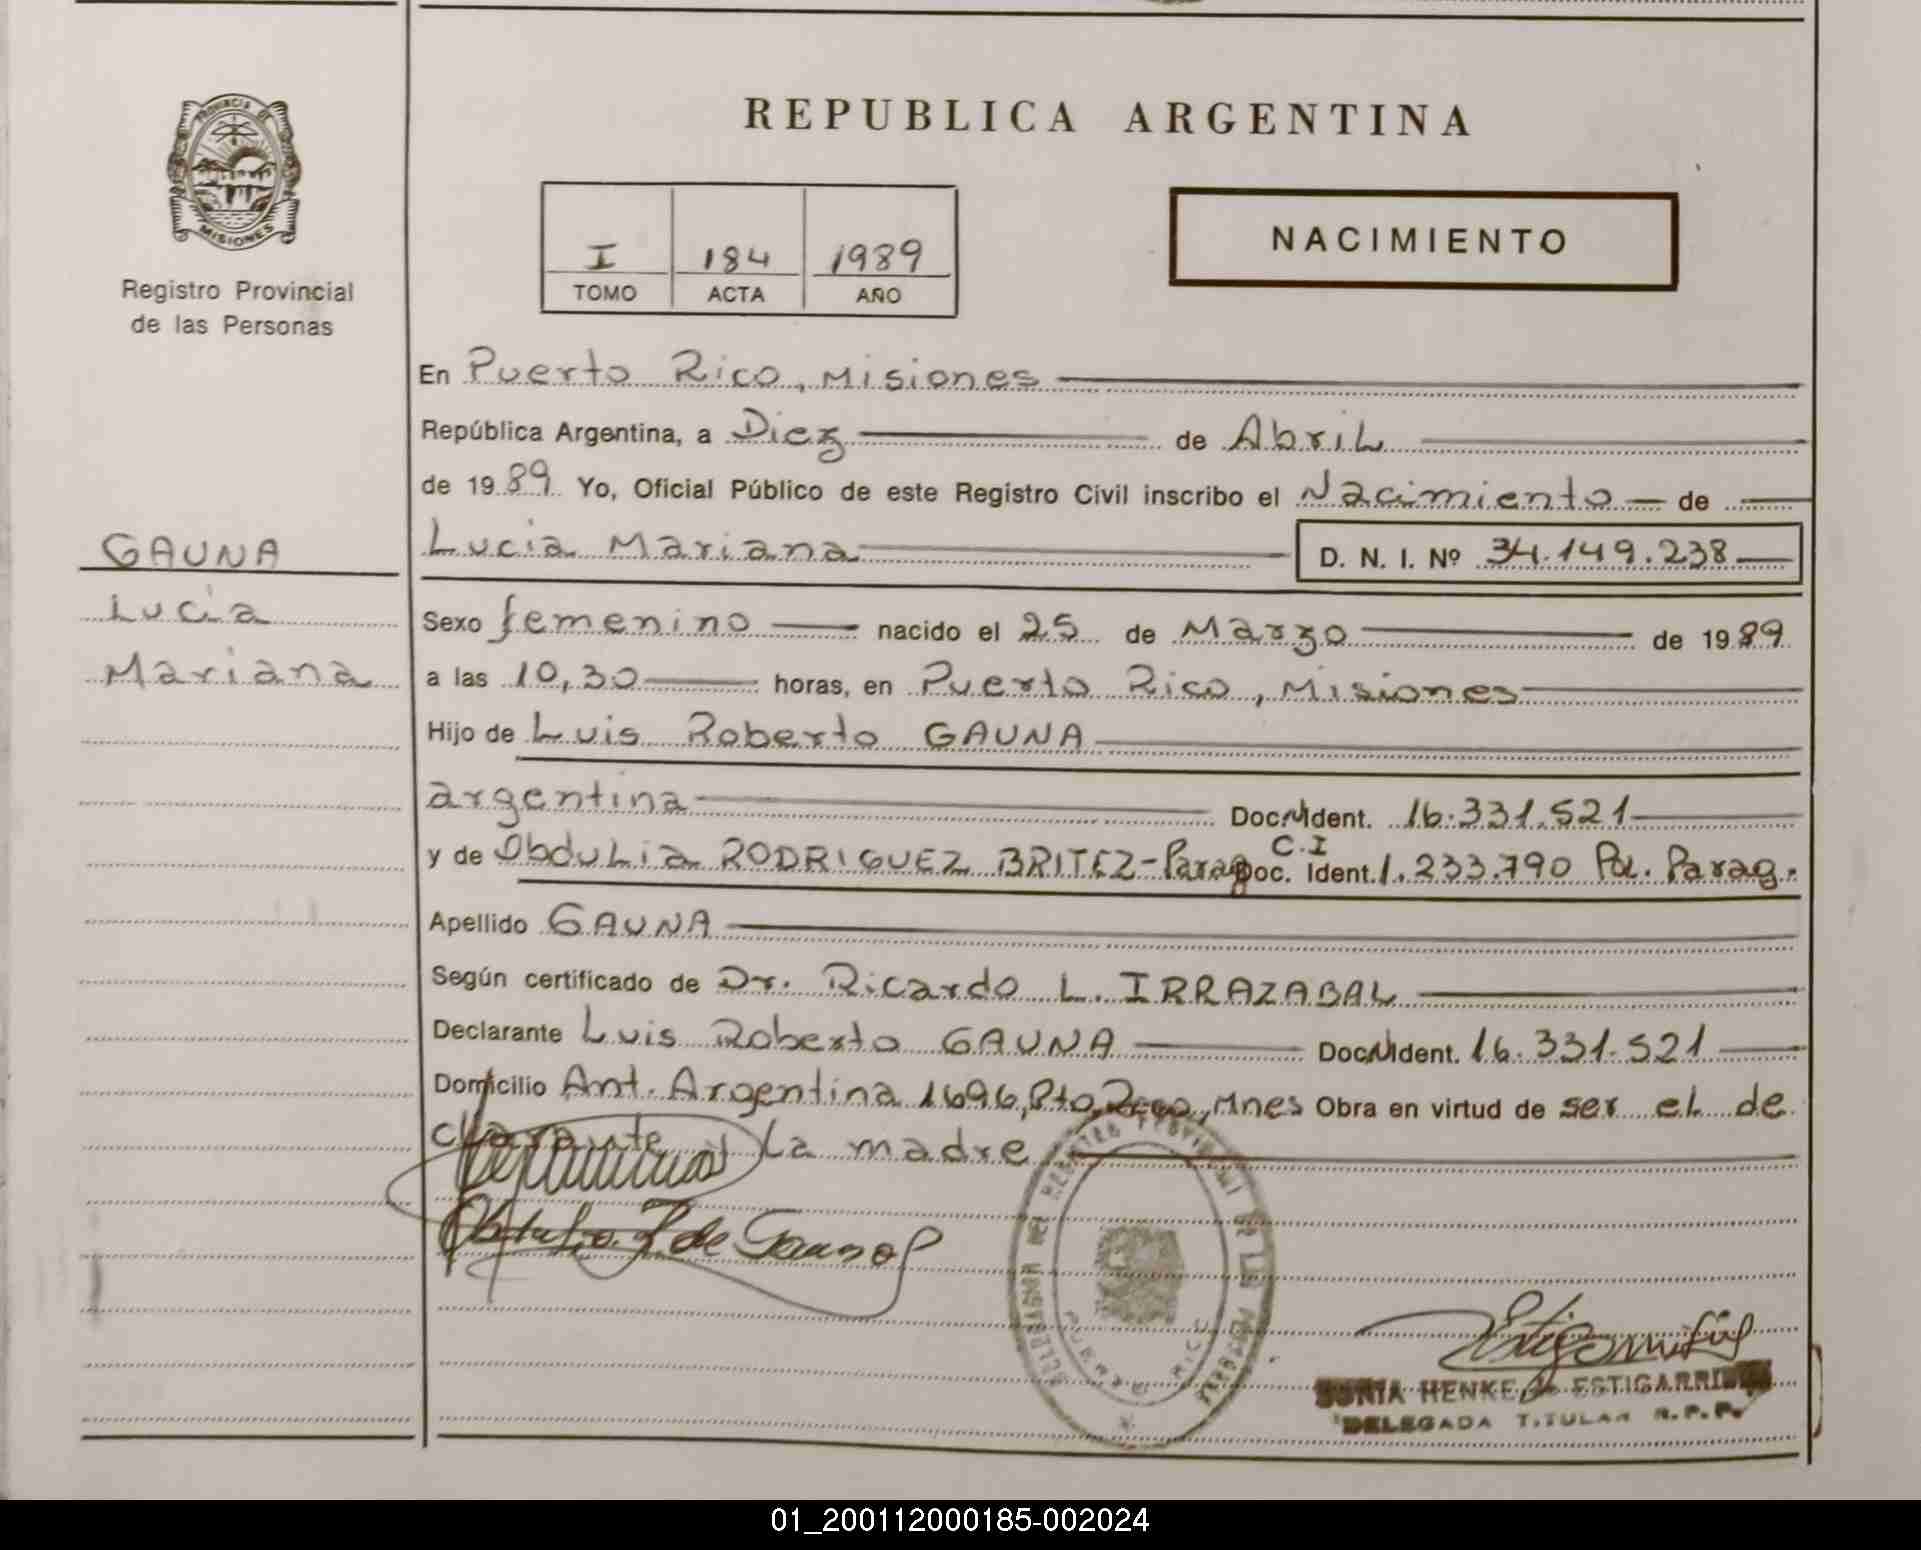 REPUBLICA ARGENTINA
PROVINCIA DE
MISIONES
Registro Provincial
de las Personas
I 184 1989
TOMO ACTA AÑO
NACIMIENTO
En Puerto Rico, Misiones
República Argentina, a Diez de Abril
de 1989 Yo, Oficial Público de este Registro Civil inscribo el Nacimiento de
GAUNA
Lucia Mariana D. N. I. Nº 34.149.238
Lucia
Sexo femenino nacido el 25 de Marzo de 1989
Mariana
a las 10,30 horas, en Puerto Rico, Misiones
Hijo de Luis Roberto GAUNA
argentina Doc. Ident. 16.331.521
C.I
y de Obdulia RODRIGUEZ BRITEZ-Parag Doc. Ident. 1.233.790 Pol. Parag.
Apellido GAUNA
Según certificado de Dr. Ricardo L. IRRAZABAL
Declarante Luis Roberto GAUNA Doc. Ident. 16.331.521
Domicilio Ant. Argentina 1696, Pto. Rico, Mnes Obra en virtud de ser el de
clarante La madre
DELEGACION DEL REGISTRO PROVINCIAL DE LAS PERSONAS
PUERTO RICO
de Gauna
SONIA HENKE de ESTIGARRIBIA
DELEGADA TITULAR R.P.P.
01_200112000185-002024